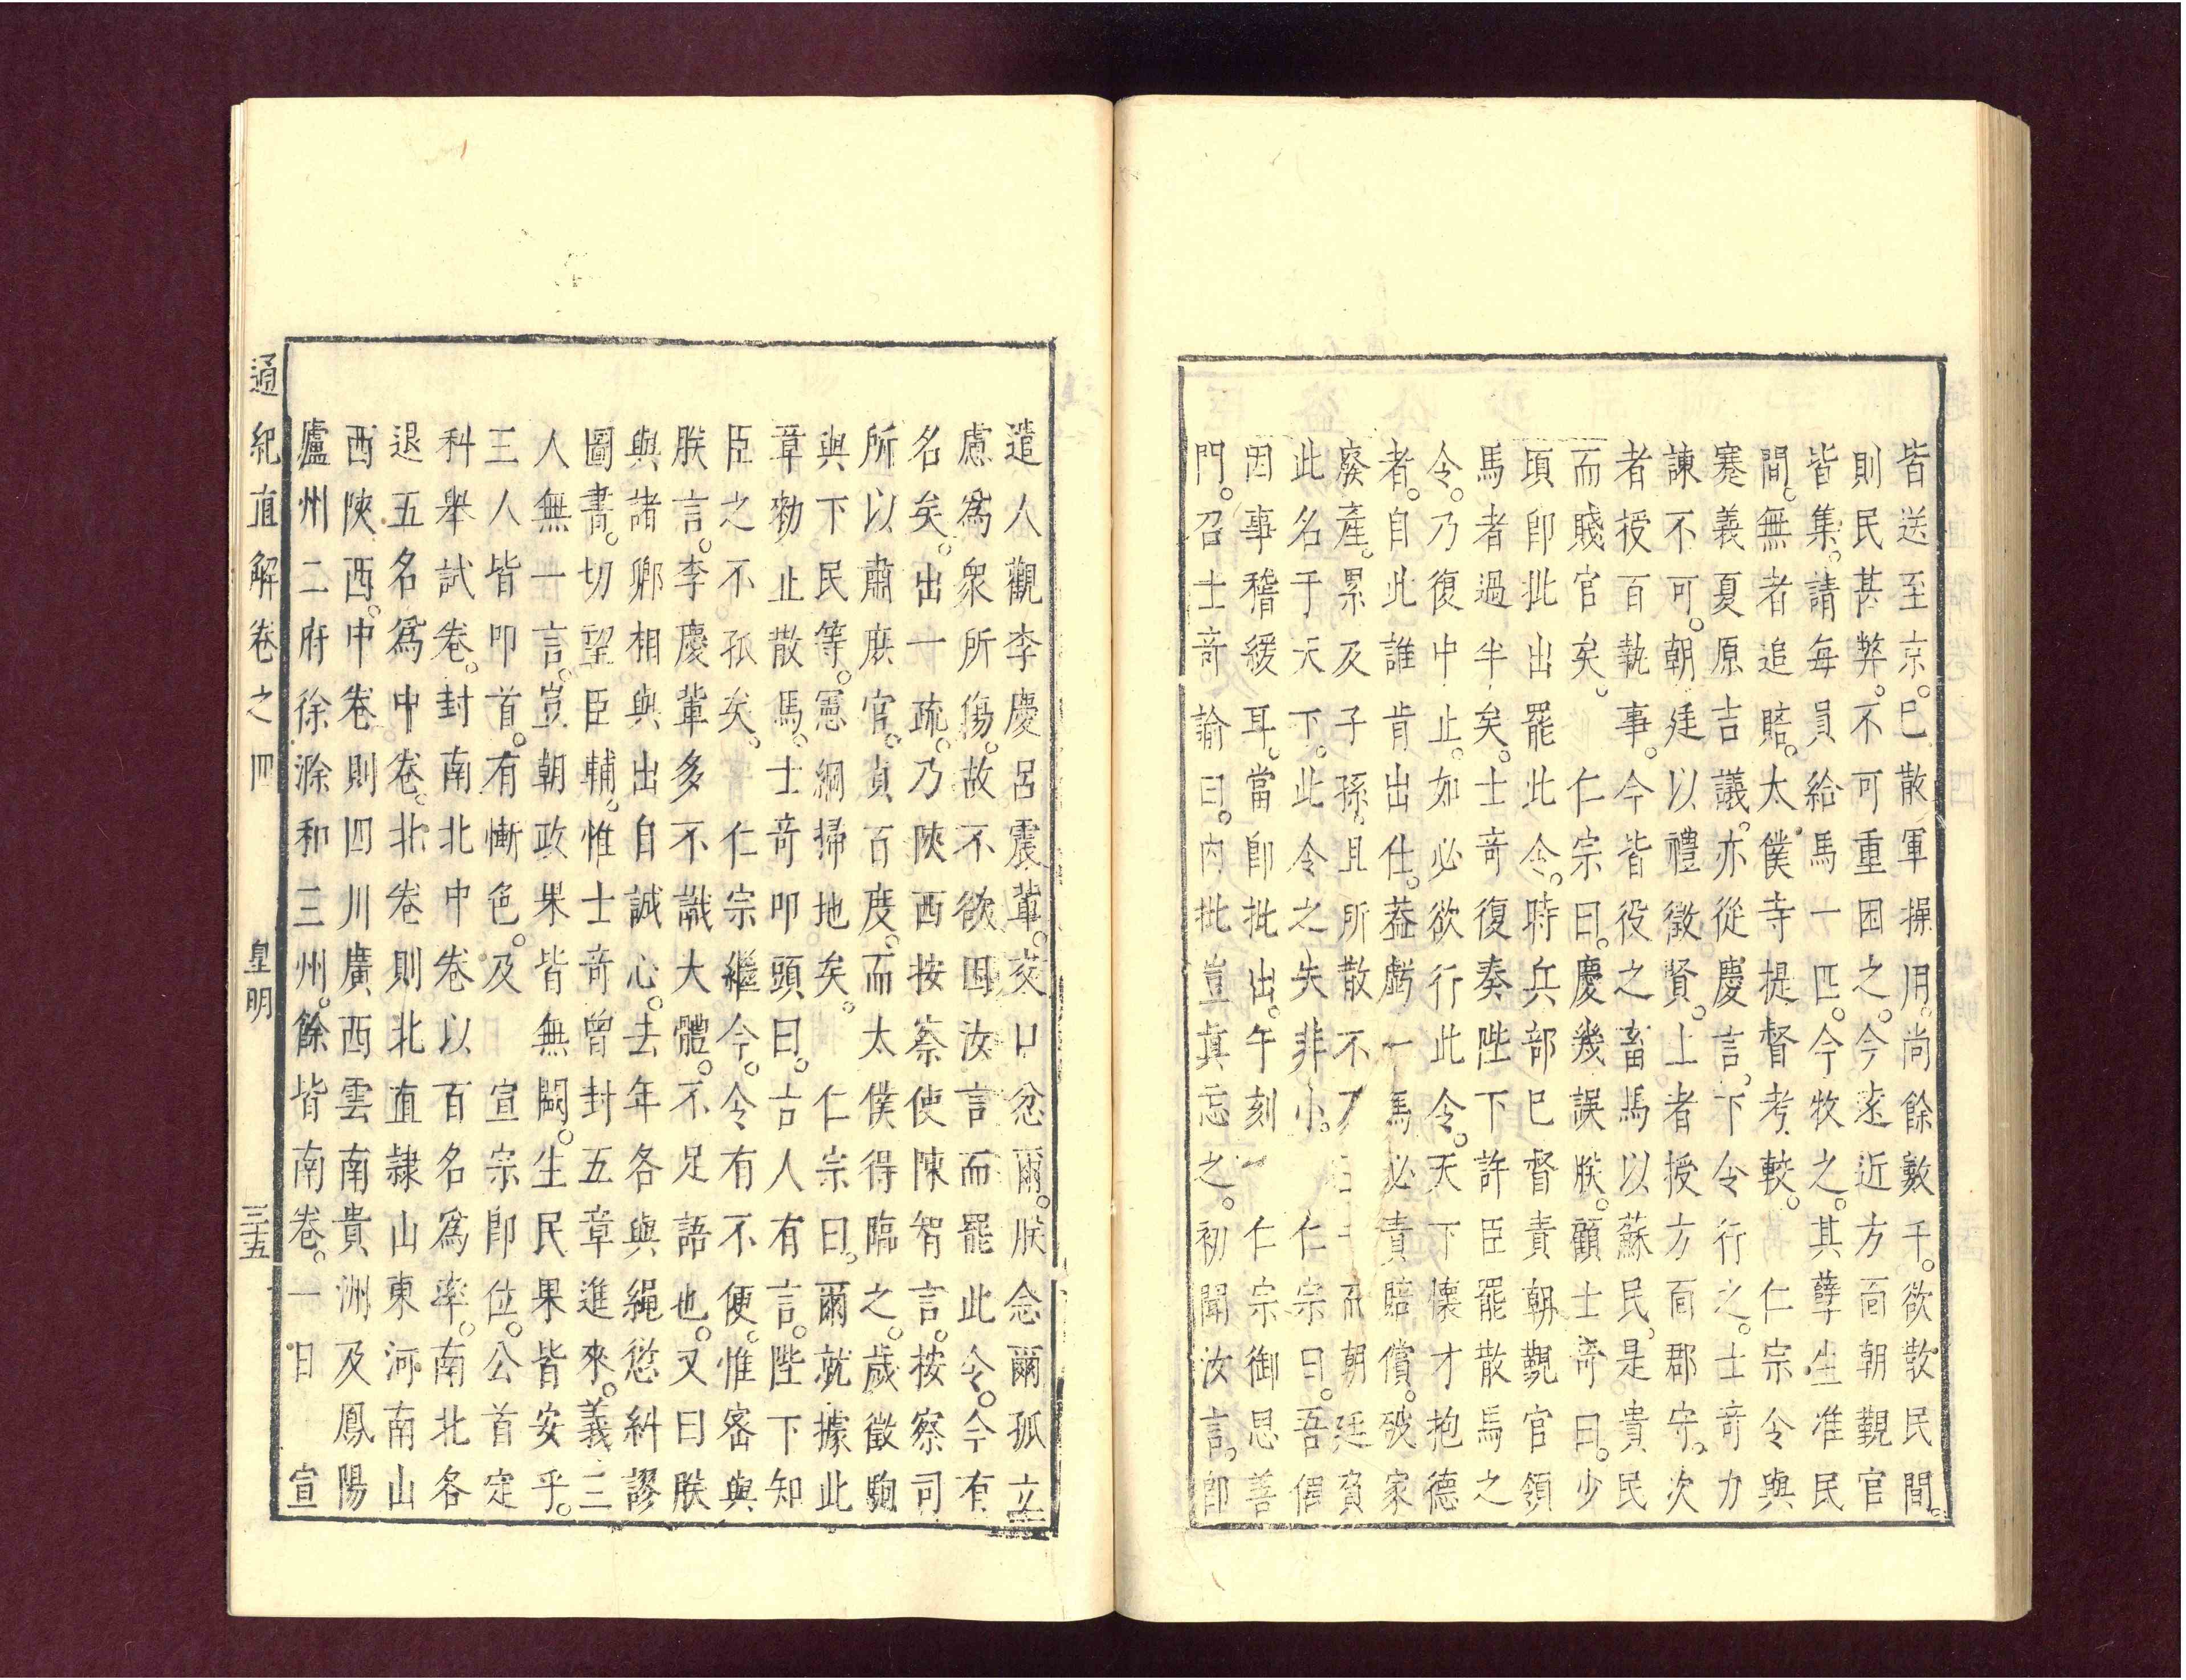 皆送至京。已散軍操用。尚餘數千。欲散民間。
則民甚弊。不可重困之。今遠近方面朝覲官
皆集。請每員給馬一匹。今牧之。其孳生准民
間。無者追賠。太僕寺提督考較。 仁宗令與
蹇義夏原吉議。亦從慶言。下令行之。士奇力
諫不可。朝廷以禮徵賢。上者授方面郡守。次
者授百執事。今皆役之畜馬以蘇民。是貴民
而賤官矣。 仁宗曰。慶幾誤朕。顧士奇曰。少
頃即批出罷此令。時兵部已督責朝覲官領
馬者過半矣。士奇復奏陛下許臣罷散馬之
令。乃復中止。如必欲行此令。天下懷才抱德
者。自此誰肯出仕。葢虧一馬必責賠償。破家
廢產。累及子孫。且所散不 而朝廷負
此名于天下。此令之失非小。 仁宗曰。吾偶
因事稽緩耳。當即批出。午刻 仁宗御思善
門。召士奇諭曰。內批豈真忘之。初聞汝言。即
遣人觀李慶呂震輩。交口忿爾。朕念爾孤立
慮為衆所傷。故不欲因汝言而罷此令。今有
名矣。出一疏。乃陝西按察使陳智言。按察司
所以肅庶官。貞百度。而太僕得臨之。歲徵駒
與下民等。憲綱掃地矣。 仁宗曰。爾就據此
章勑止散馬。士奇叩頭曰。古人有言。陛下知
臣之不孤矣。 仁宗繼今。令有不便。惟密與
朕言。李慶輩多不識大體。不足語也。又曰朕
與諸卿相與出自誠心。去年各與繩愆糾謬
圖書。切望臣輔。惟士奇曾封五章進來。義三
人無一言。豈朝政果皆無闕。生民果皆安乎。
三人皆叩首。有慚色。及 宣宗即位。公首定
科舉試卷。封南北中卷以百名為率。南北各
退五名為中卷。北卷則北直隷山東河南山
西陝西。中卷則四川廣西雲南貴洲及鳳陽
廬州二府徐滁和三州。餘皆南卷。一日 宣
通紀直解卷之四 皇明 三十五